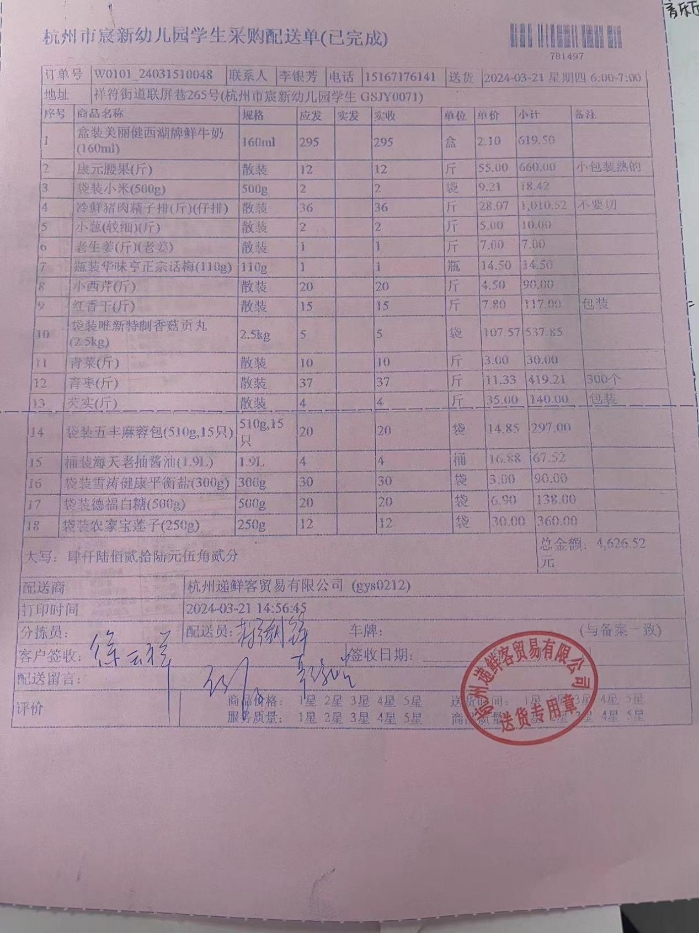 杭州市宸新幼儿园学生采购配送单(已完成)
781497
订单号 W0101_24031510048 联系人 李银芳 电话 15167176141 送货 2024-03-21 星期四 6:00-7:00
地址 祥符街道联屏巷265号(杭州市宸新幼儿园学生 GSJY0071)
序号 商品名称 规格 应发 实发 实收 单位 单价 小计 备注
1 盒装美丽健西湖牌鲜牛奶(160ml) 160ml 295 295 盒 2.10 619.50
2 康元腰果(斤) 散装 12 12 斤 55.00 660.00 小包装熟的
3 袋装小米(500g) 500g 2 2 袋 9.21 18.42
4 冷鲜猪肉精子排(斤)(仔排) 散装 36 36 斤 28.07 1,010.52 不要切
5 小葱(较细)(斤) 散装 2 2 斤 5.00 10.00
6 老生姜(斤)(老姜) 散装 1 1 斤 7.00 7.00
7 瓶装华味亨正宗话梅(110g) 110g 1 1 瓶 14.50 14.50
8 小西芹(斤) 散装 20 20 斤 4.50 90.00
9 红香干(斤) 散装 15 15 斤 7.80 117.00 包装
10 袋装唯新特制香菇贡丸(2.5kg) 2.5kg 5 5 袋 107.57 537.85
11 青菜(斤) 散装 10 10 斤 3.00 30.00
12 青枣(斤) 散装 37 37 斤 11.33 419.21 300个
13 芡实(斤) 散装 4 4 斤 35.00 140.00 包装
14 袋装五丰麻蓉包(510g,15只) 510g,15只 20 20 袋 14.85 297.00
15 桶装海天老抽酱油(1.9L) 1.9L 4 4 桶 16.88 67.52
16 袋装雪涛健康平衡盐(300g) 300g 30 30 袋 3.00 90.00
17 袋装德福白糖(500g) 500g 20 20 袋 6.90 138.00
18 袋装农家宝莲子(250g) 250g 12 12 袋 30.00 360.00
大写: 肆仟陆佰贰拾陆元伍角贰分 总金额: 4,626.52元
配送商 杭州递鲜客贸易有限公司 (gys0212)
打印时间 2024-03-21 14:56:45
分拣员: 配送员: 车牌: (与备案一致)
客户签收: 签收日期:
配送留言:
评价 商品价格: 1星 2星 3星 4星 5星 送货时间: 1星 2星 3星 4星 5星
服务质量: 1星 2星 3星 4星 5星 商品质量: 1星 2星 3星 4星 5星
杭州递鲜客贸易有限公司
送货专用章